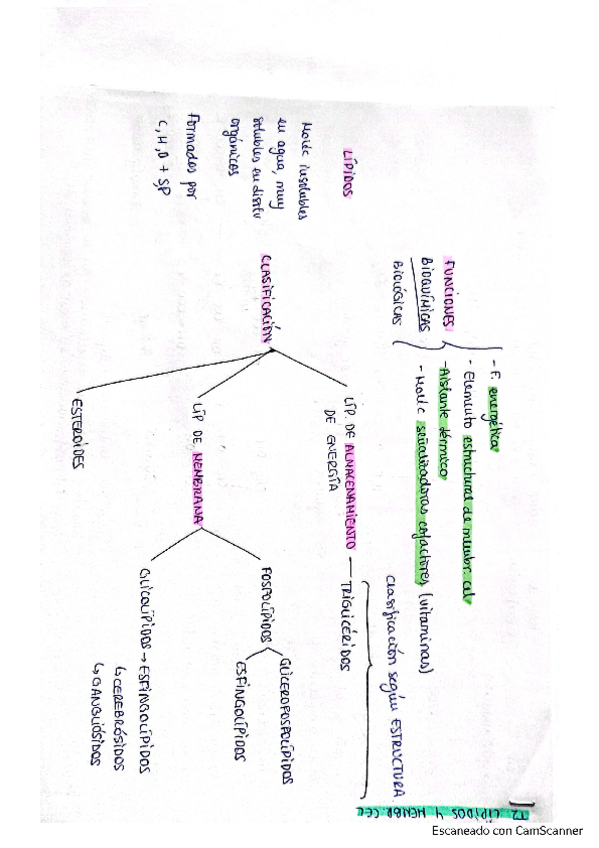 T2. LÍPIDOS Y MEMBR. CEL
FUNCIONES
BIOQUÍMICAS
BIOLÓGICAS
- F. energética
- Elemento estructural de membr. cel
- Aislante térmico
- Moléc señalizadoras cofactores (vitaminas)
LÍPIDOS
Moléc insolubles
en agua, muy
solubles en disolv
orgánicos
Formados por
C, H, O + S, P
CLASIFICACIÓN
Clasificación según ESTRUCTURA
LÍP. DE ALMACENAMIENTO — TRIGLICÉRIDOS
DE ENERGÍA
LÍP DE MEMBRANA
FOSFOLÍPIDOS
GLICEROFOSFOLÍPIDOS
ESFINGOLÍPIDOS
GLICOLÍPIDOS → ESFINGOLÍPIDOS
↳ CEREBRÓSIDOS
↳ GANGLIÓSIDOS
ESTEROIDES
Escaneado con CamScanner